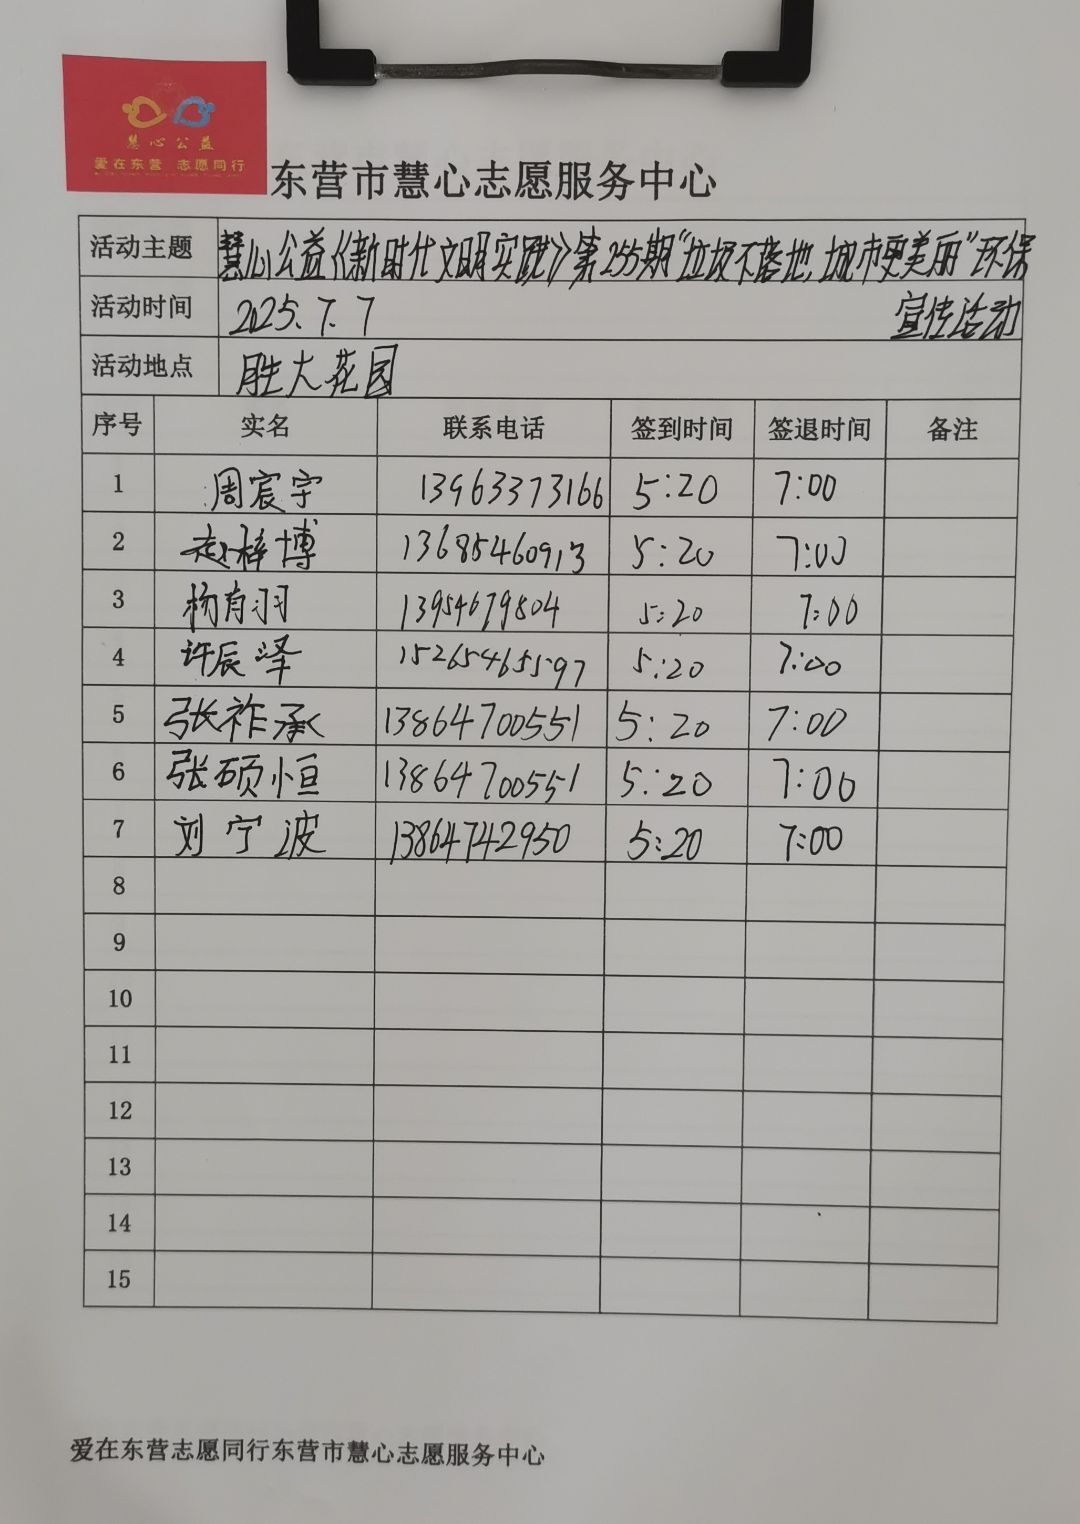 慧心公益
爱在东营 志愿同行
东营市慧心志愿服务中心
活动主题 慧心公益《新时代文明实践》第255期“垃圾不落地,城市更美丽”环保
宣传活动
活动时间 2025.7.7
活动地点 胜大花园
序号 实名 联系电话 签到时间 签退时间 备注
1 周宸宇 13963373166 5:20 7:00
2 赵梓博 13685460913 5:20 7:00
3 杨育羽 13954679804 5:20 7:00
4 许辰泽 15265465597 5:20 7:00
5 张祚承 13864700551 5:20 7:00
6 张硕恒 13864700551 5:20 7:00
7 刘宁波 13864742950 5:20 7:00
8
9
10
11
12
13
14
15
爱在东营志愿同行东营市慧心志愿服务中心